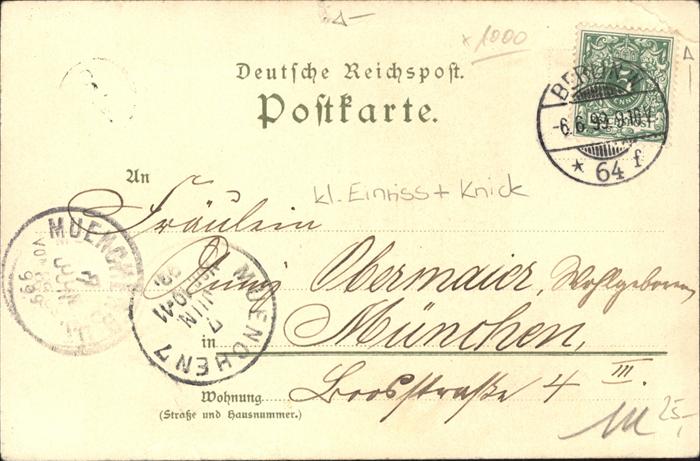 x 1000
Deutsche Reichspost.
Postkarte.
BERLIN N
-6.6.99.9-10V.
* 64 f
An
kl. Einriss + Knick
Fräulein
Obermaier, Wohlgeboren,
in München,
Wohnung Loosstraße 4 III.
(Straße und Hausnummer.)
MUENCHEN
7
JUN
99
MUENCHEN 7
7
JUN
10-11
25,-